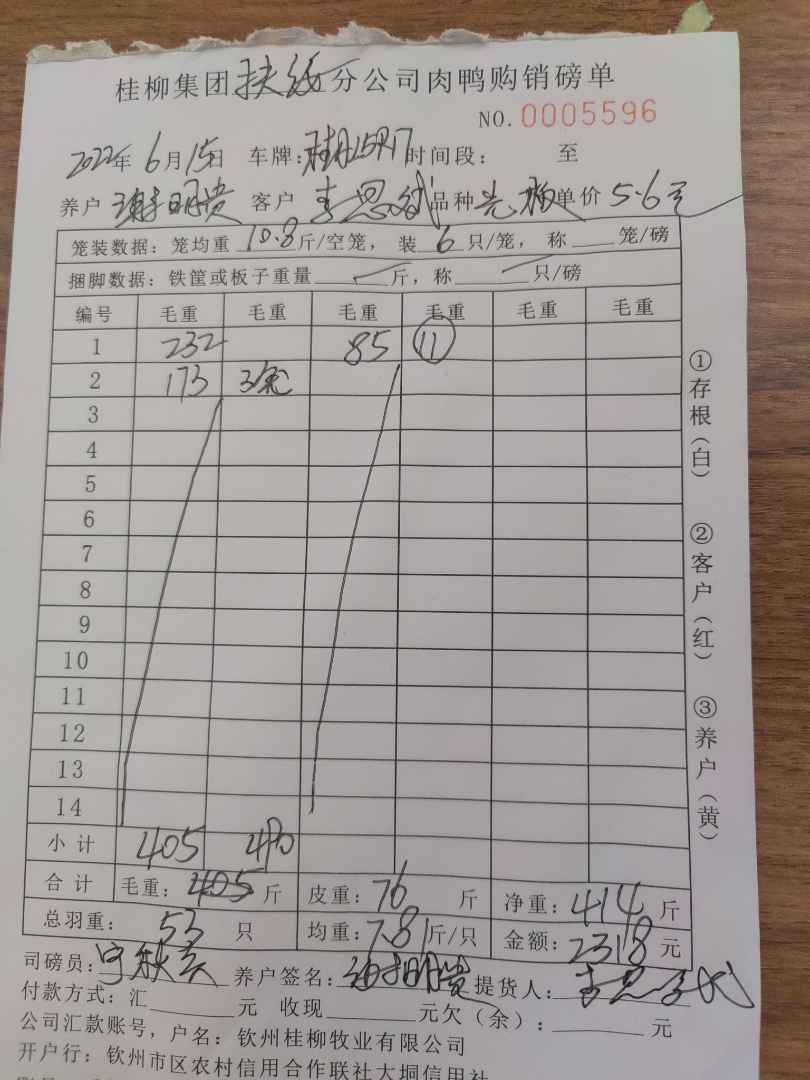 桂柳集团扶绥分公司肉鸭购销磅单
NO.0005596
2022年6月15日 车牌: 时间段: 至
养户 谢明贵 客户 李思斌 品种 单价 5.6元
笼装数据: 笼均重 10.8斤/空笼, 装 6 只/笼, 称 笼/磅
捆脚数据: 铁筐或板子重量 斤, 称 只/磅
编号 毛重 毛重 毛重 毛重 毛重 毛重
1 232 85 11
2 173
3
4
5
6
7
8
9
10
11
12
13
14
小计 405
合计 毛重: 405 斤 皮重: 76 斤 净重: 414 斤
总羽重: 53 只 均重: 7.81斤/只 金额: 2318元
司磅员: 养户签名: 谢明贵 提货人: 李思斌
付款方式: 汇 元 收现 元欠(余): 元
公司汇款账号, 户名: 钦州桂柳牧业有限公司
开户行: 钦州市区农村信用合作联社大垌信用社
①存根(白)
②客户(红)
③养户(黄)